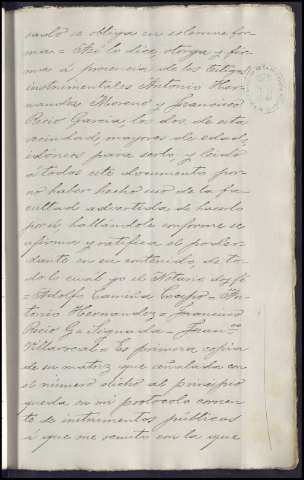 sado se obliga en solemne for-
ma = Así lo dice, otorga y fir-
ma á presencia de los testigos
instrumentales Antonio Her-
nandez Moreno y Francisco
Recio Garcia, los dos de esta
vecindad, mayores de edad,
idóneos para serlo, y leido
á todos este documento por
no haber hecho uso de la fa-
cultad advertida de hacerlo
por sí, hallándole conforme se
afirma y ratifica el poder-
dante en su contenido, de to-
do lo cual yo el Notario doy fé
= Adolfo = An-
tonio Hernandez = Francisco
Recio G. = Signado = Fran.co
Villarreal = Es primera copia
de su matriz que señalada con
el número dicho al principio
queda en mi protocolo corrien-
te de instrumentos públicos
á que me remito con la que